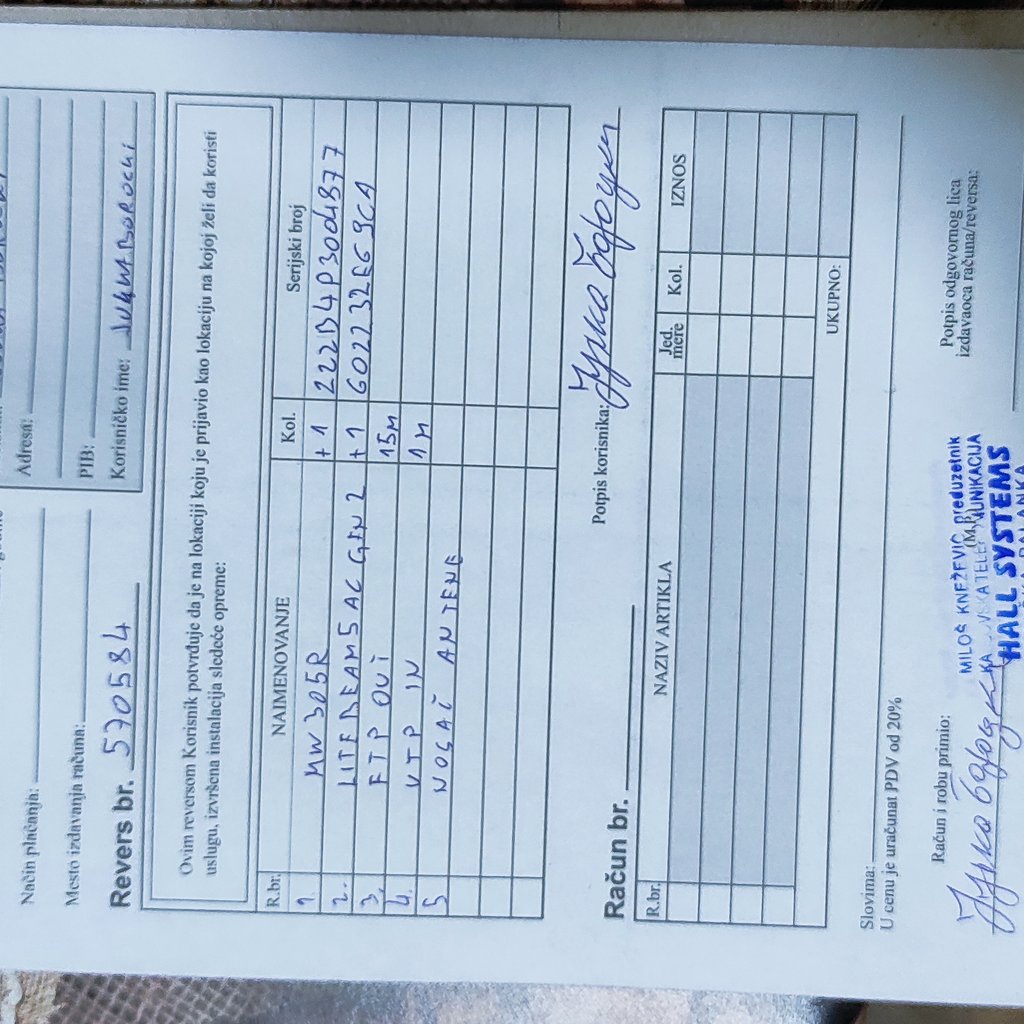 Način plaćanja:
Mesto izdavanja računa:
Adresa:
PIB:
Korisničko ime:
Revers br. 570584
Ovim reversom Korisnik potvrđuje da je na lokaciji koju je prijavio kao lokaciju na kojoj želi da koristi
uslugu, izvršena instalacija sledeće opreme:
R.br. NAIMENOVANJE Kol. Serijski broj
1. MW305R +1 222B4P3004877
2. LITEBEAM5 AC GEN2 +1 602232E69CA
3. FTP OUT 15M
4. UTP IN 1M
5 NOSAČ ANTENE
Potpis korisnika:
Račun br.
R.br. NAZIV ARTIKLA Jed. mere Kol. IZNOS
UKUPNO:
Slovima:
U cenu je uračunat PDV od 20%
Račun i robu primio:
Potpis odgovornog lica
izdavaoca računa/reversa:
(M.P.)
MILOŠ KNEŽEVIĆ preduzetnik
HALL SYSTEMS